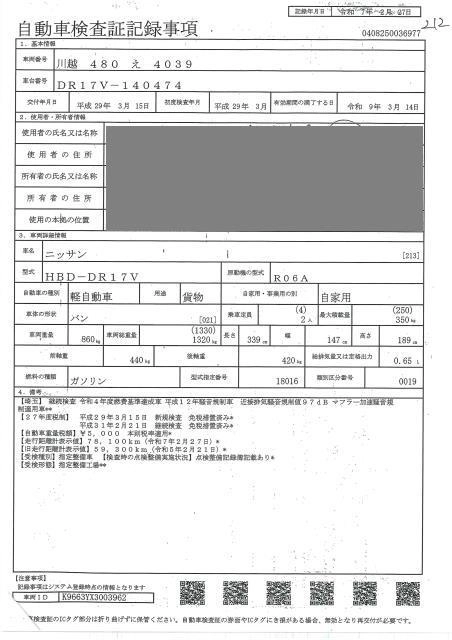 記録年月日 令和 7年 2月 27日
212
自動車検査証記録事項 0408250036977
1. 基本情報
車両番号 川越 480 え 4039
車台番号 DR17V-140474
交付年月日 平成29年 3月 15日 初度検査年月 平成 29年 3月 有効期間の満了する日 令和 9年 3月 14日
2. 使用者・所有者情報
使用者の氏名又は名称
使用者の住所
所有者の氏名又は名称
所有者の住所
使用の本拠の位置
3. 車両詳細情報
車名 ニッサン [213]
型式 HBD-DR17V 原動機の型式 R06A
自動車の種別 軽自動車 用途 貨物 自家用・事業用の別 自家用
車体の形状 バン [021] 乗車定員 (4) 2人 最大積載量 (250) 350kg
車両重量 860kg 車両総重量 (1330) 1320kg 長さ 339cm 幅 147cm 高さ 189cm
前軸重 440kg 後軸重 420kg 総排気量又は定格出力 0.65 L
燃料の種類 ガソリン 型式指定番号 18016 類別区分番号 0019
4. 備考
【埼玉】 継続検査 令和4年度燃費基準達成車 平成12年騒音規制車 近接排気騒音規制値97dB マフラー加速騒音規
制適用車**
【27年度税制】 平成29年3月15日 新規検査 免税措置済み*
平成31年2月21日 継続検査 免税措置済み*
【自動車重量税額】¥5,000 本則税率適用*
【走行距離計表示値】78,100km(令和7年2月27日)*
【旧走行距離計表示値】59,300km(令和5年2月21日)*
【受検種別】指定整備車 【検査時の点検整備実施状況】点検整備記録簿記載あり*
【受検形態】指定整備工場**
【注意事項】
記録事項はシステム登録時点の情報となります
車両ID K9663YX3003962
検査証のICタグ部分は折り曲げずに保管ください。自動車検査証の券面やICタグにき損がある場合、無効となり再交付が必要です。